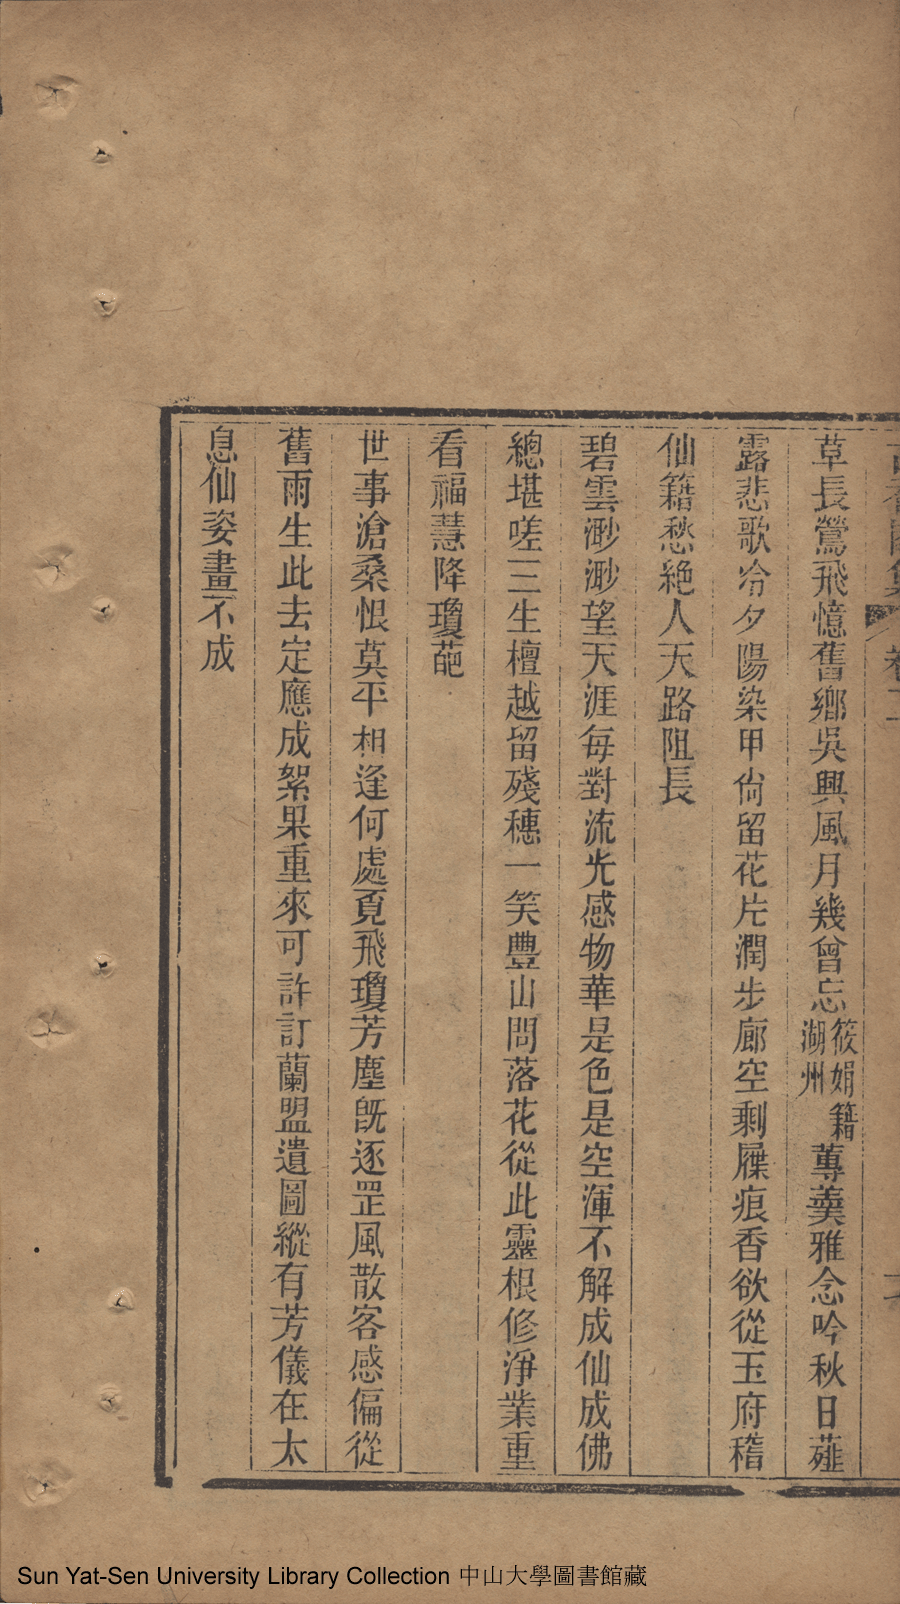 草長鶯飛憶舊鄉吳興風月幾曾忘筱娟籍湖州蓴羹雅念吟秋日薤
露悲歌冷夕陽染甲尙留花片潤步廊空剩屧痕香欲從玉府稽
仙籍愁絕人天路阻長
碧雲渺渺望天涯每對流光感物華是色是空渾不解成仙成佛
總堪嗟三生檀越留殘穗一笑豐山問落花從此靈根修淨業重
看福慧降瓊葩
世事滄桑恨莫平相逢何處覓飛瓊芳塵旣逐罡風散客感偏從
舊雨生此去定應成絮果重來可許訂蘭盟遺圖縱有芳儀在太
息仙姿畫不成
Sun Yat-Sen University Library Collection 中山大學圖書館藏